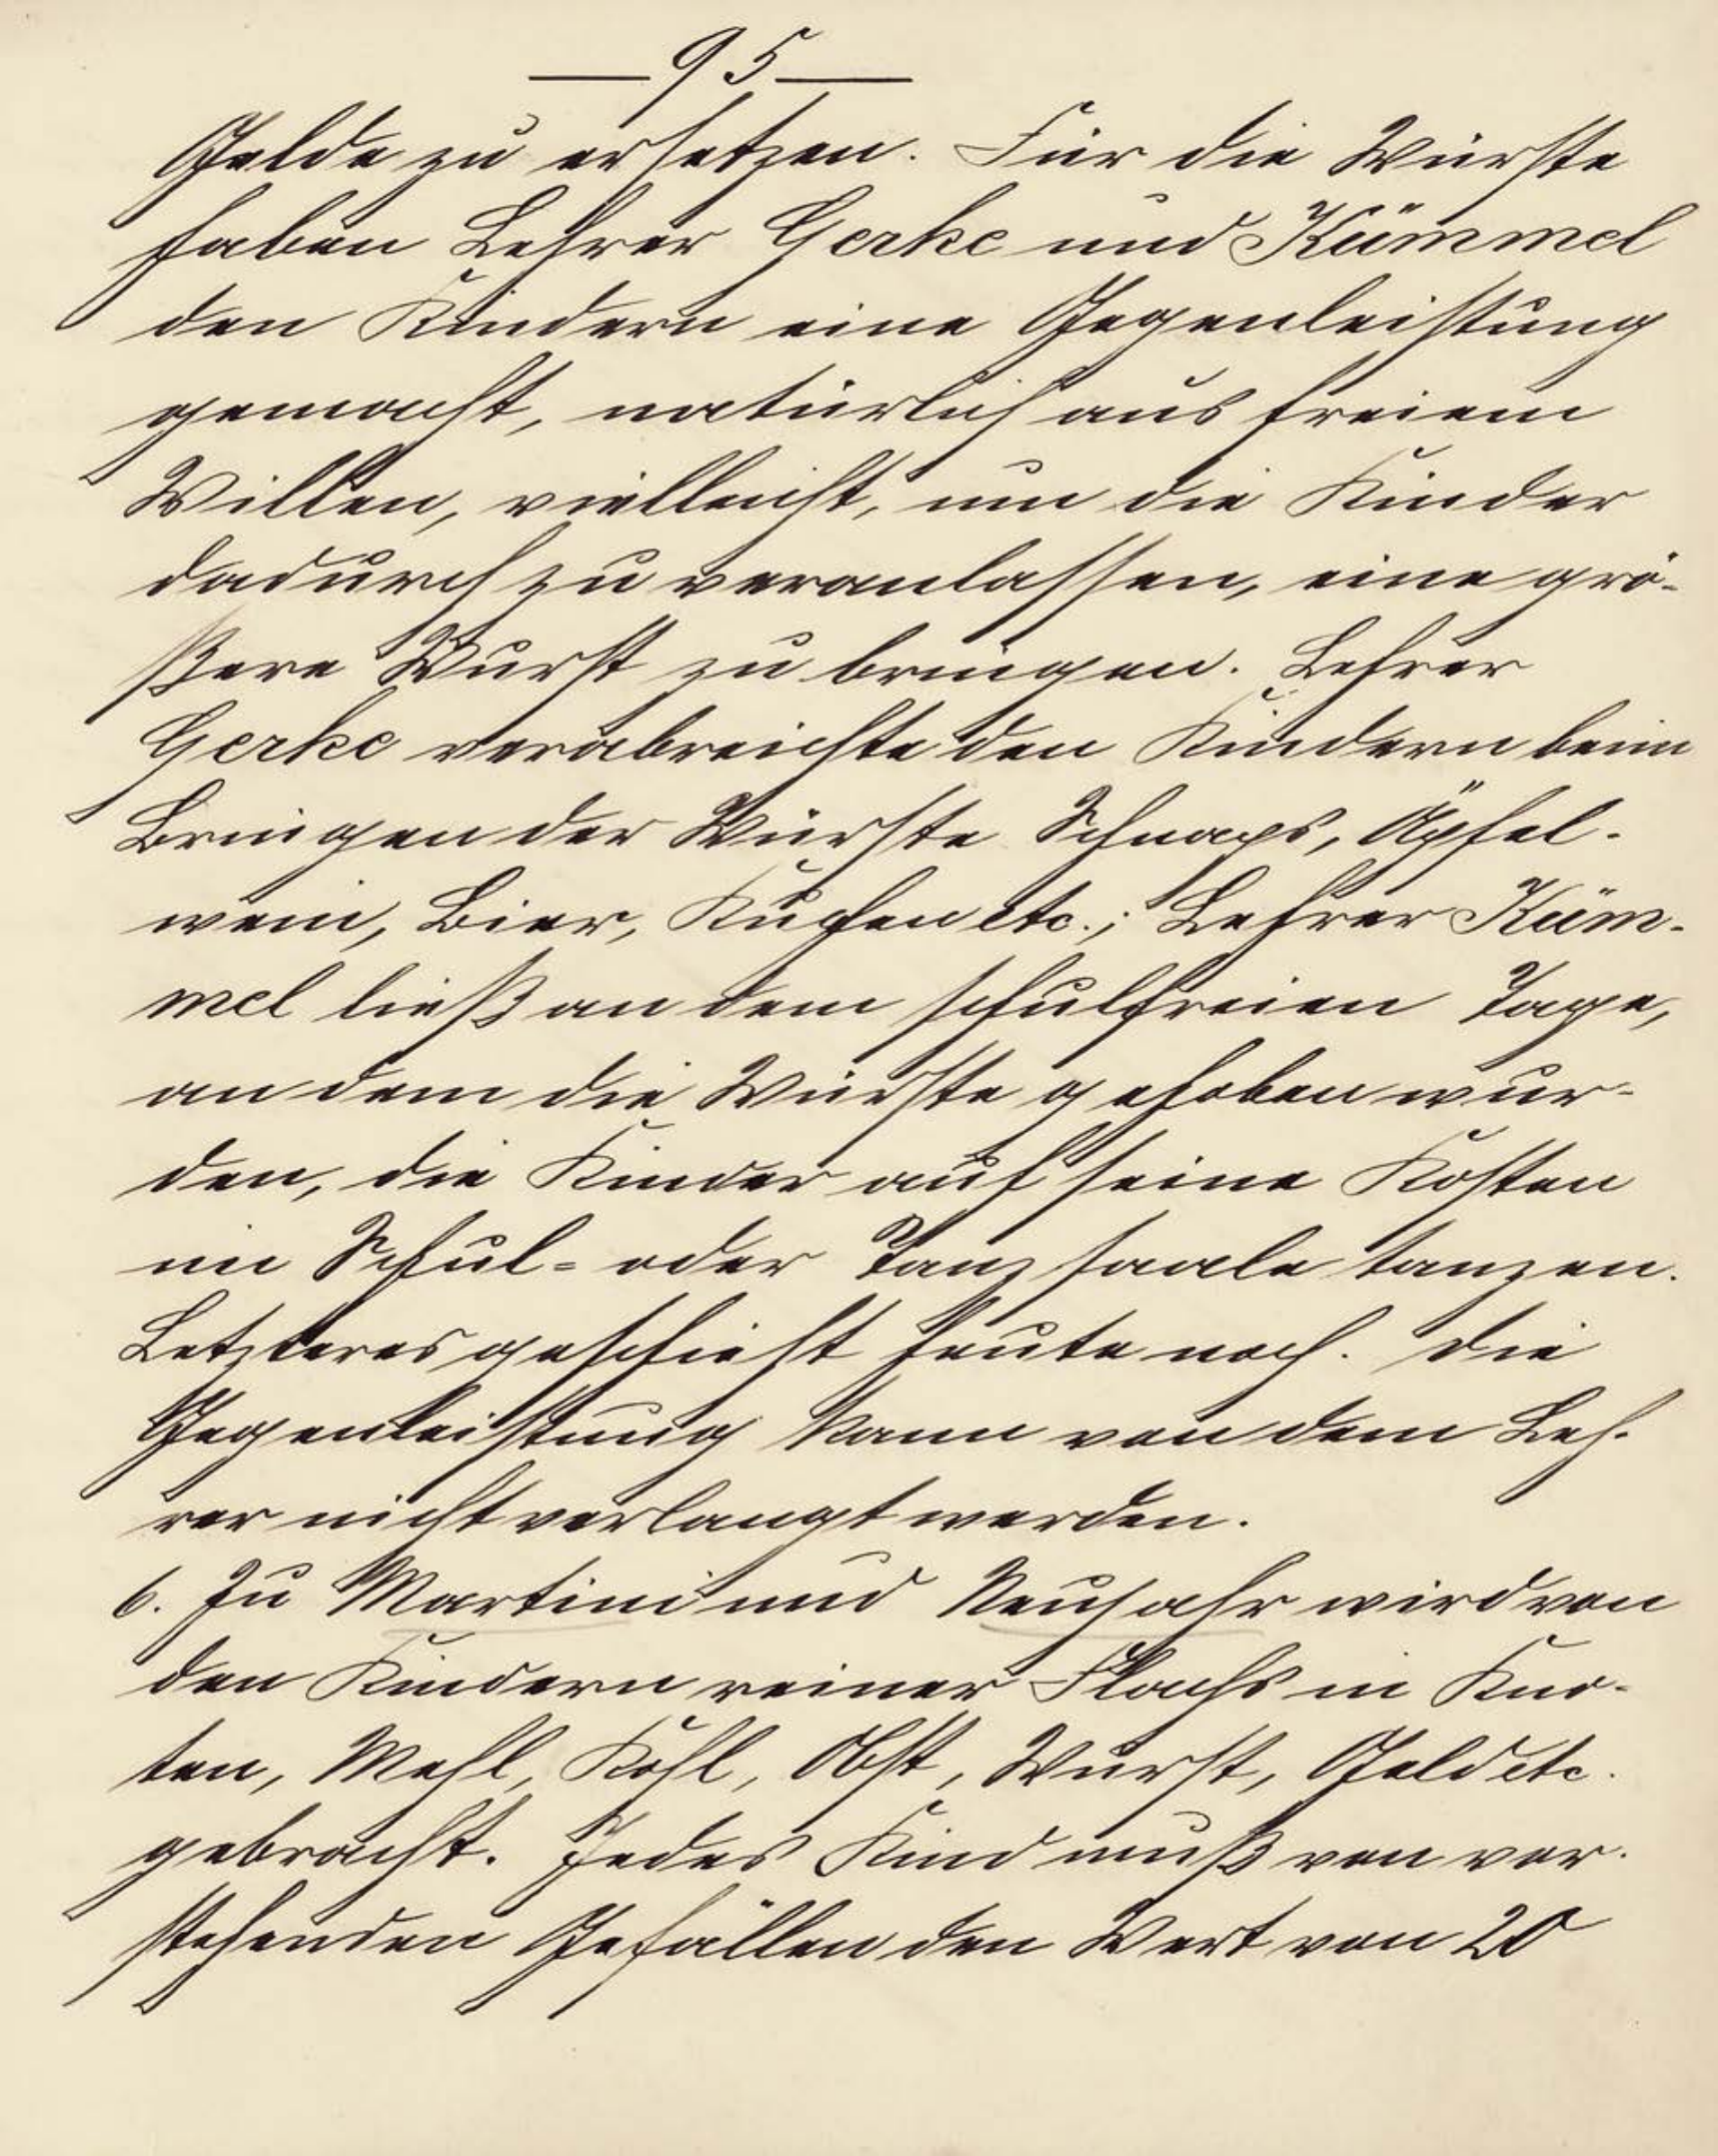 — 95 —
Gelde zu ersetzen. Für die Würste
haben Lehrer Gerke und Kümmel
den Kindern eine Gegenleistung
gemacht, natürlich aus freiem
Willen, vielleicht, um die Kinder
dadurch zu veranlassen, eine grö-
ßere Wurst zu bringen. Lehrer
Gerke verabreichte den Kindern beim
Bringen der Würste Schnaps, Äpfel-
wein, Bier, Kuchen etc.; Lehrer Küm-
mel ließ an dem schulfreien Tage,
an dem die Würste gehoben wur-
den, die Kinder auf seine Kosten
im Schul- oder Tanzsaale tanzen.
Letzteres geschieht heute noch. Die
Gegenleistung kann von dem Leh-
rer nicht verlangt werden.
6. Zu Martini und Neujahr wird von
den Kindern reiner Flachs in Kno-
ten, Mehl, Kohl, Obst, Wurst, Geld etc.
gebracht. Jedes Kind muß von vor-
stehenden Gefällen den Wert von 20